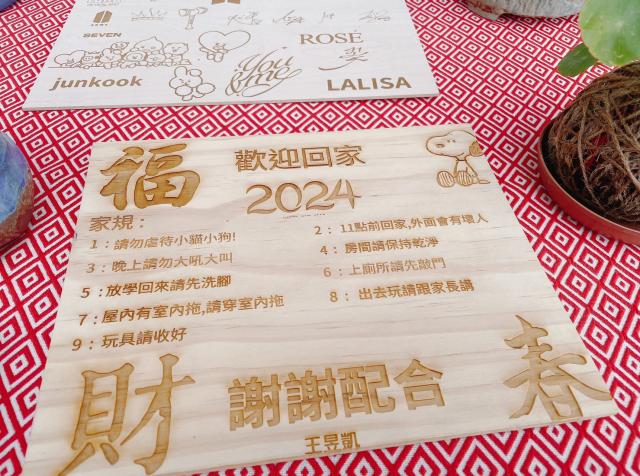 SEVEN
junkook
You
& me
ROSÉ
LALISA
福
歡迎回家
2024
家規:
1：請勿虐待小貓小狗!
2：11點前回家,外面會有壞人
3：晚上請勿大吼大叫
4：房間請保持乾淨
5：放學回來請先洗腳
6：上廁所請先敲門
7：屋內有室內拖,請穿室內拖
8：出去玩請跟家長講
9：玩具請收好
財
謝謝配合
春
王昱凱